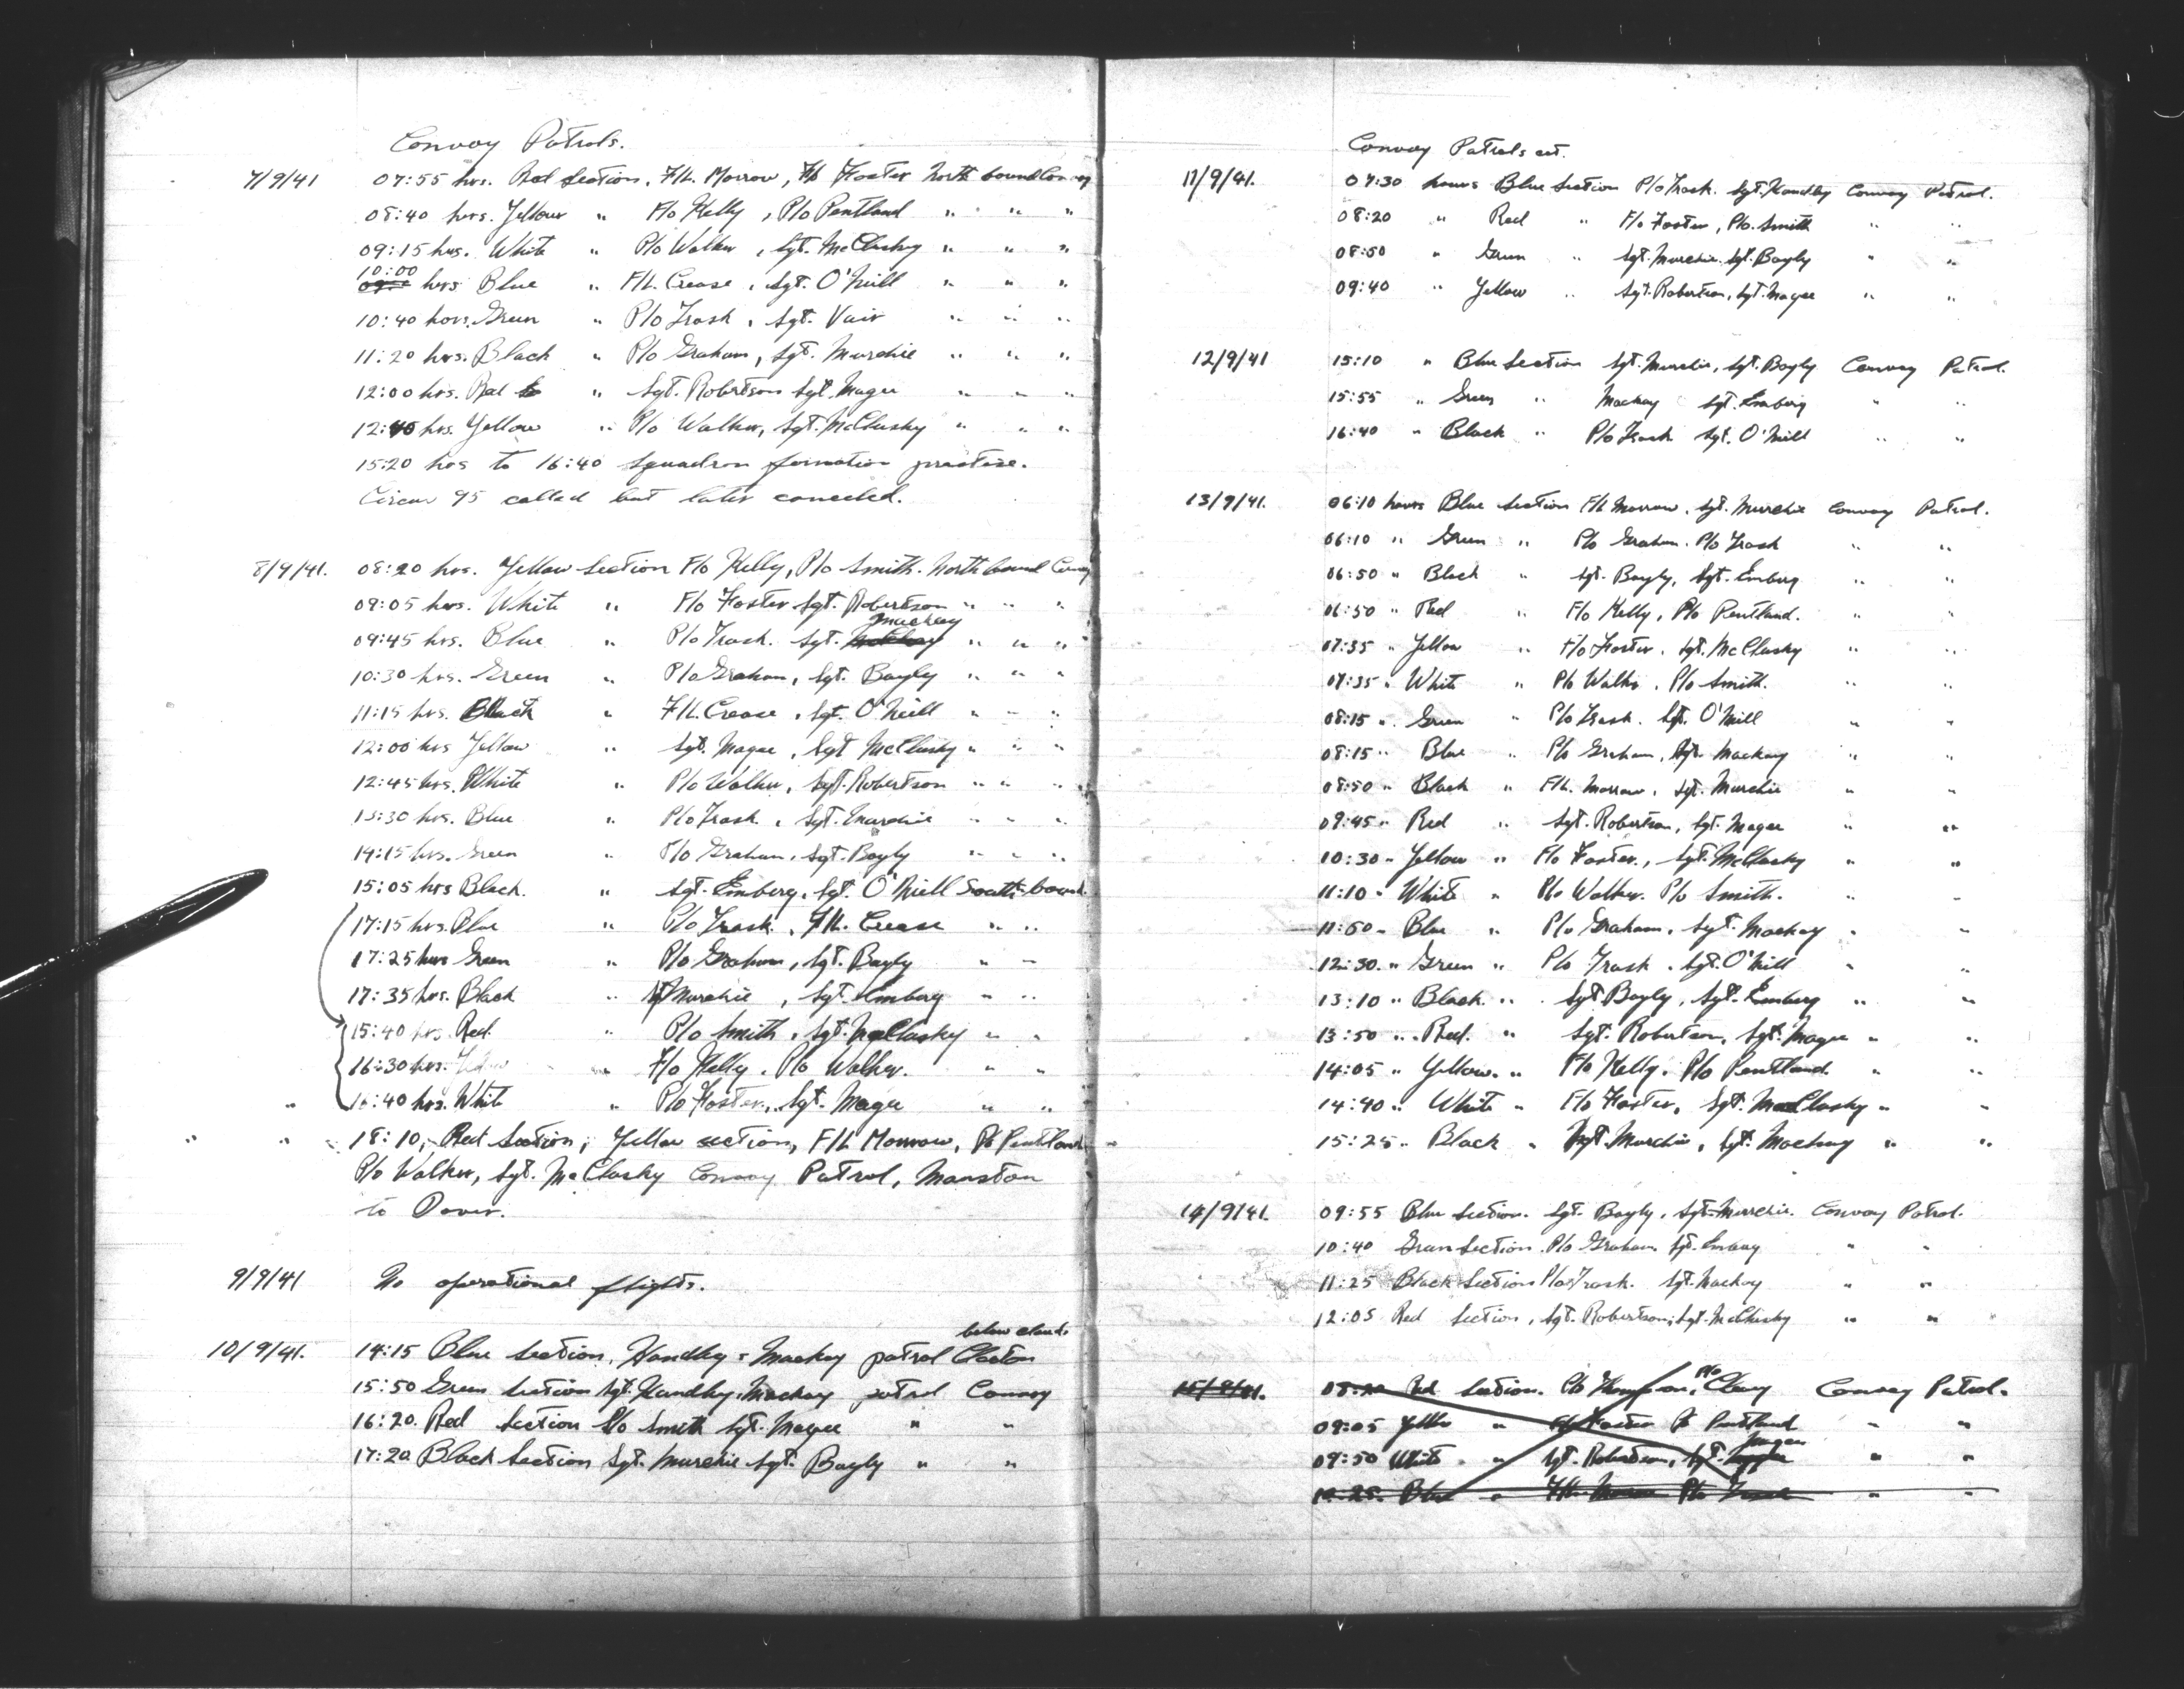 Convoy Patrols.
7/9/41 07:55 hrs. Red Section, F/L. Morrow, F/o Foster North bound Convoy
08:40 hrs. Yellow " F/o Kelly, P/o Pentland " " "
09:15 hrs. White " P/o Walker, Sgt. McClusky " " "
10:00
hrs Blue " F/L. Crease, Sgt. O'Neill " " "
10:40 hors. Green " P/o Trask, Sgt. Vair " " "
11:20 hrs. Black " P/o Graham, Sgt. Murchie " " "
12:00 hrs. Red " Sgt. Robertson Sgt. Magee " " "
12:40 hrs. Yellow " P/o Walker, Sgt. McClusky " " "
15:20 hrs to 16:40 Squadron formation practise.
Circus 95 called but later canceled.
8/9/41. 08:20 hrs. Yellow Section F/o Kelly, P/o Smith. North bound Convoy
09:05 hrs. White " F/o Foster Sgt. Robertson " " "
Mackay
09:45 hrs. Blue " P/o Trask. Sgt. " " "
10:30 hrs. Green " P/o Graham, Sgt. Bayly " " "
11:15 hrs. Black " F/L. Crease, Sgt. O'Neill " " "
12:00 hrs Yellow " Sgt. Magee, Sgt McClusky " " "
12:45 hrs. White " P/o Walker, Sgt. Robertson " " "
13:30 hrs. Blue " P/o Trask, Sgt. Murchie " " "
14:15 hrs. Green " P/o Graham, Sgt. Bayly " " "
15:05 hrs Black. " Sgt. Emberg, Sgt. O'Neill South bound
17:15 hrs. Blue " P/o Trask, F/L. Crease " "
17:25 hrs Green " P/o Graham, Sgt. Bayly " "
17:35 hrs. Black " Sgt Murchie, Sgt. Emberg " "
15:40 hrs. Red. " P/o Smith, Sgt. McClusky " "
16:30 hrs. " F/o Kelly, P/o Walker. " "
16:40 hrs. White " P/o Foster, Sgt. Magee " "
" " 18:10, Red Section, Yellow section, F/L Morrow, P/o Pentland
P/o Walker, Sgt. McClusky Convoy Patrol, Manston
to Dover.
9/9/41 No operational flights.
below clouds
10/9/41. 14:15 Blue Section, Handley & Mackay patrol Clacton
15:50 Green Section Sgt. Handley, Mackay patrol Convoy
16:20. Red Section P/o Smith Sgt. Magee " "
17:20 Black Section Sgt. Murchie Sgt. Bayly " "
Convoy Patrols cst.
11/9/41. 07:30 hours Blue Section P/o Trask. Sgt. Handley Convoy Patrol.
08:20 " Red " F/o Foster, P/o. Smith " "
08:50 " Green " Sgt. Murchie. Sgt. Bayly " "
09:40 " Yellow " Sgt. Robertson, Sgt. Magee " "
12/9/41 15:10 " Blue Section Sgt. Murchie, Sgt. Bayly Convoy Patrol.
15:55 " Green " Mackay Sgt. Emberg " "
16:40 " Black " P/o Trask Sgt. O'Neill " "
13/9/41. 06:10 hours Blue Section F/L Morrow, Sgt. Murchie Convoy Patrol.
06:10 " Green " P/o Graham. P/o Trask " "
06:50 " Black " Sgt. Bayly, Sgt. Emberg " "
06:50 " Red " F/o Kelly, P/o Pentland. " "
07:35 " Yellow " F/o Foster, Sgt. McClusky " "
07:35 " White " P/o Walker, P/o Smith. " "
08:15 " Green " P/o Trask. Sgt. O'Neill " "
08:15 " Blue " P/o Graham, Sgt. Mackay " "
08:50 " Black " F/L. Morrow, Sgt. Murchie " "
09:45 " Red " Sgt. Robertson, Sgt. Magee " "
10:30 " Yellow " F/o Foster, Sgt. McClusky " "
11:10 " White " P/o Walker. P/o Smith. " "
11:50 " Blue " P/o Graham, Sgt. Mackay " "
12:30. " Green " P/o Trask, Sgt. O'Neill " "
13:10 " Black. " Sgt Bayly, Sgt. Emberg " "
13:50 " Red. " Sgt. Robertson, Sgt. Magee " "
14:05 " Yellow. " F/o Kelly, P/o Pentland. " "
14:40 " White " F/o Foster, Sgt. McClusky " "
15:25 " Black " Sgt. Murchie, Sgt. Mackay " "
14/9/41. 09:55 Blue Section. Sgt. Bayly, Sgt. Murchie. Convoy Patrol.
10:40 Green Section. P/o Graham. Sgt. Emberg " "
11:25 Black Section P/o Trask. Sgt. Mackay " "
12:05 Red Section, Sgt. Robertson, Sgt. McClusky " "
15/9/41. 08:20 Red Section. P/o Thompson, P/o Convoy Patrol.
09:05 Yellow " F/o Foster P/o Pentland " "
Magee
09:50 White " Sgt. Robertson, Sgt. " "
10:25. Blue " F/L. Morrow P/o Trask " "